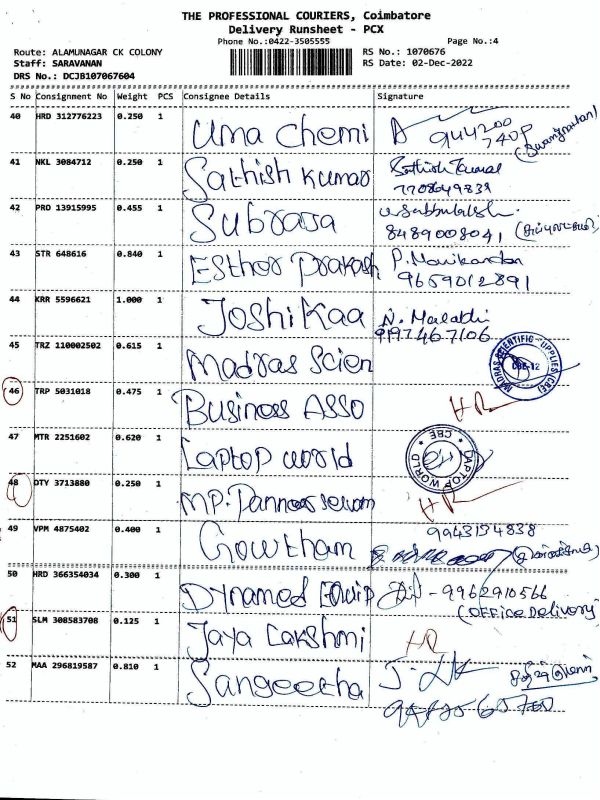 THE PROFESSIONAL COURIERS, Coimbatore
Delivery Runsheet - PCX
Phone No.:0422-3505555 Page No.:4
Route: ALAMUNAGAR CK COLONY RS No.: 1070676
Staff: SARAVANAN RS Date: 02-Dec-2022
DRS No.: DCJB107067604
S No Consignment No Weight PCS Consignee Details Signature
40 HRD 312776223 0.250 1 Uma Chemi
944200
7409
41 NKL 3084712 0.250 1 Sathish Kumar Sathish Kumar
7708649839
42 PRO 13915995 0.455 1 Subraja
8489008041
43 STR 648616 0.840 1 Esther Prakash P. Manikandan
9659012891
44 KRR 5596621 1.000 1 Joshikaa N. Malathi
9197467106
45 TRZ 110002502 0.615 1 Madras Scien MADRAS SCIENTIFIC SUPPLIES (CBE) CBE-12
46 TRP 5031018 0.475 1 Business ASSO HR
47 MTR 2251602 0.620 1 Laptop world LAPTOP WORLD CBE
48 DTY 3713880 0.250 1 MP. HR
49 VPM 4875402 0.400 1 Gowtham 9943154838
50 HRD 366354034 0.300 1 Dynamed Equip - 9962910566
(OFFICE Delivery)
51 SLM 308583708 0.125 1 Jaya Lakshmi HR
52 MAA 296819587 0.810 1 Sangeetha